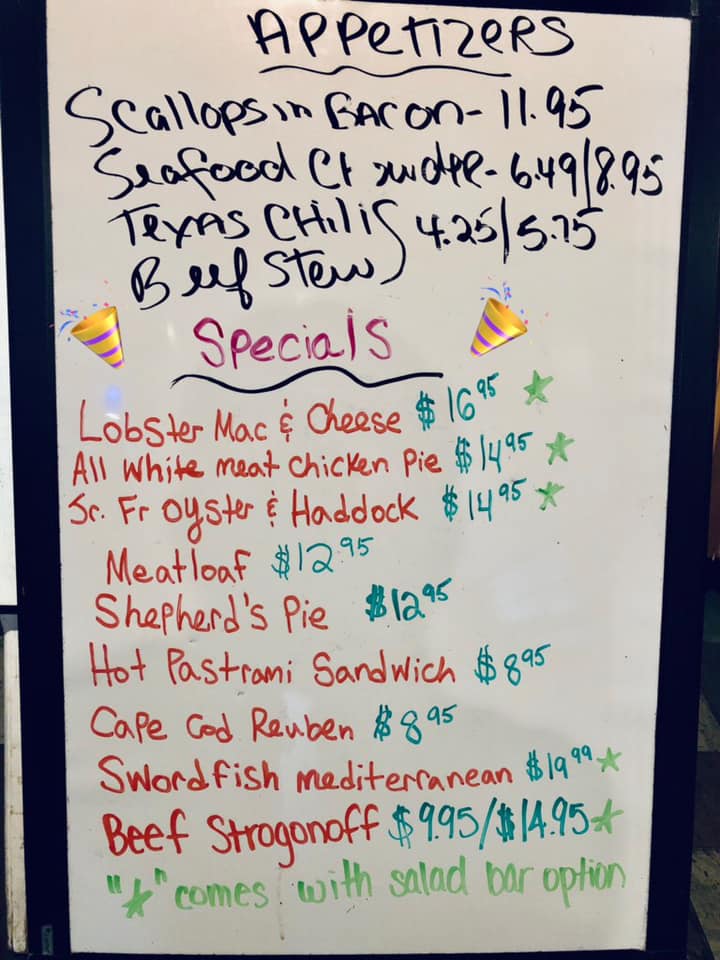 APPetizeRS
Scallops in BACon - 11.95
Seafood Chowder - 6.49/8.95
TexAS CHili 4.25/5.75
Beef Stew
Specials
Lobster Mac & Cheese $16.95 ★
All White meat Chicken Pie $14.95 ★
Jr. Fr Oyster & Haddock $14.95 ★
Meatloaf $12.95
Shepherd's Pie $12.95
Hot Pastrami Sandwich $8.95
Cape Cod Reuben $8.95
Swordfish mediterranean $19.99 ★
Beef Strogonoff $9.95/$14.95 ★
"★" comes with salad bar option